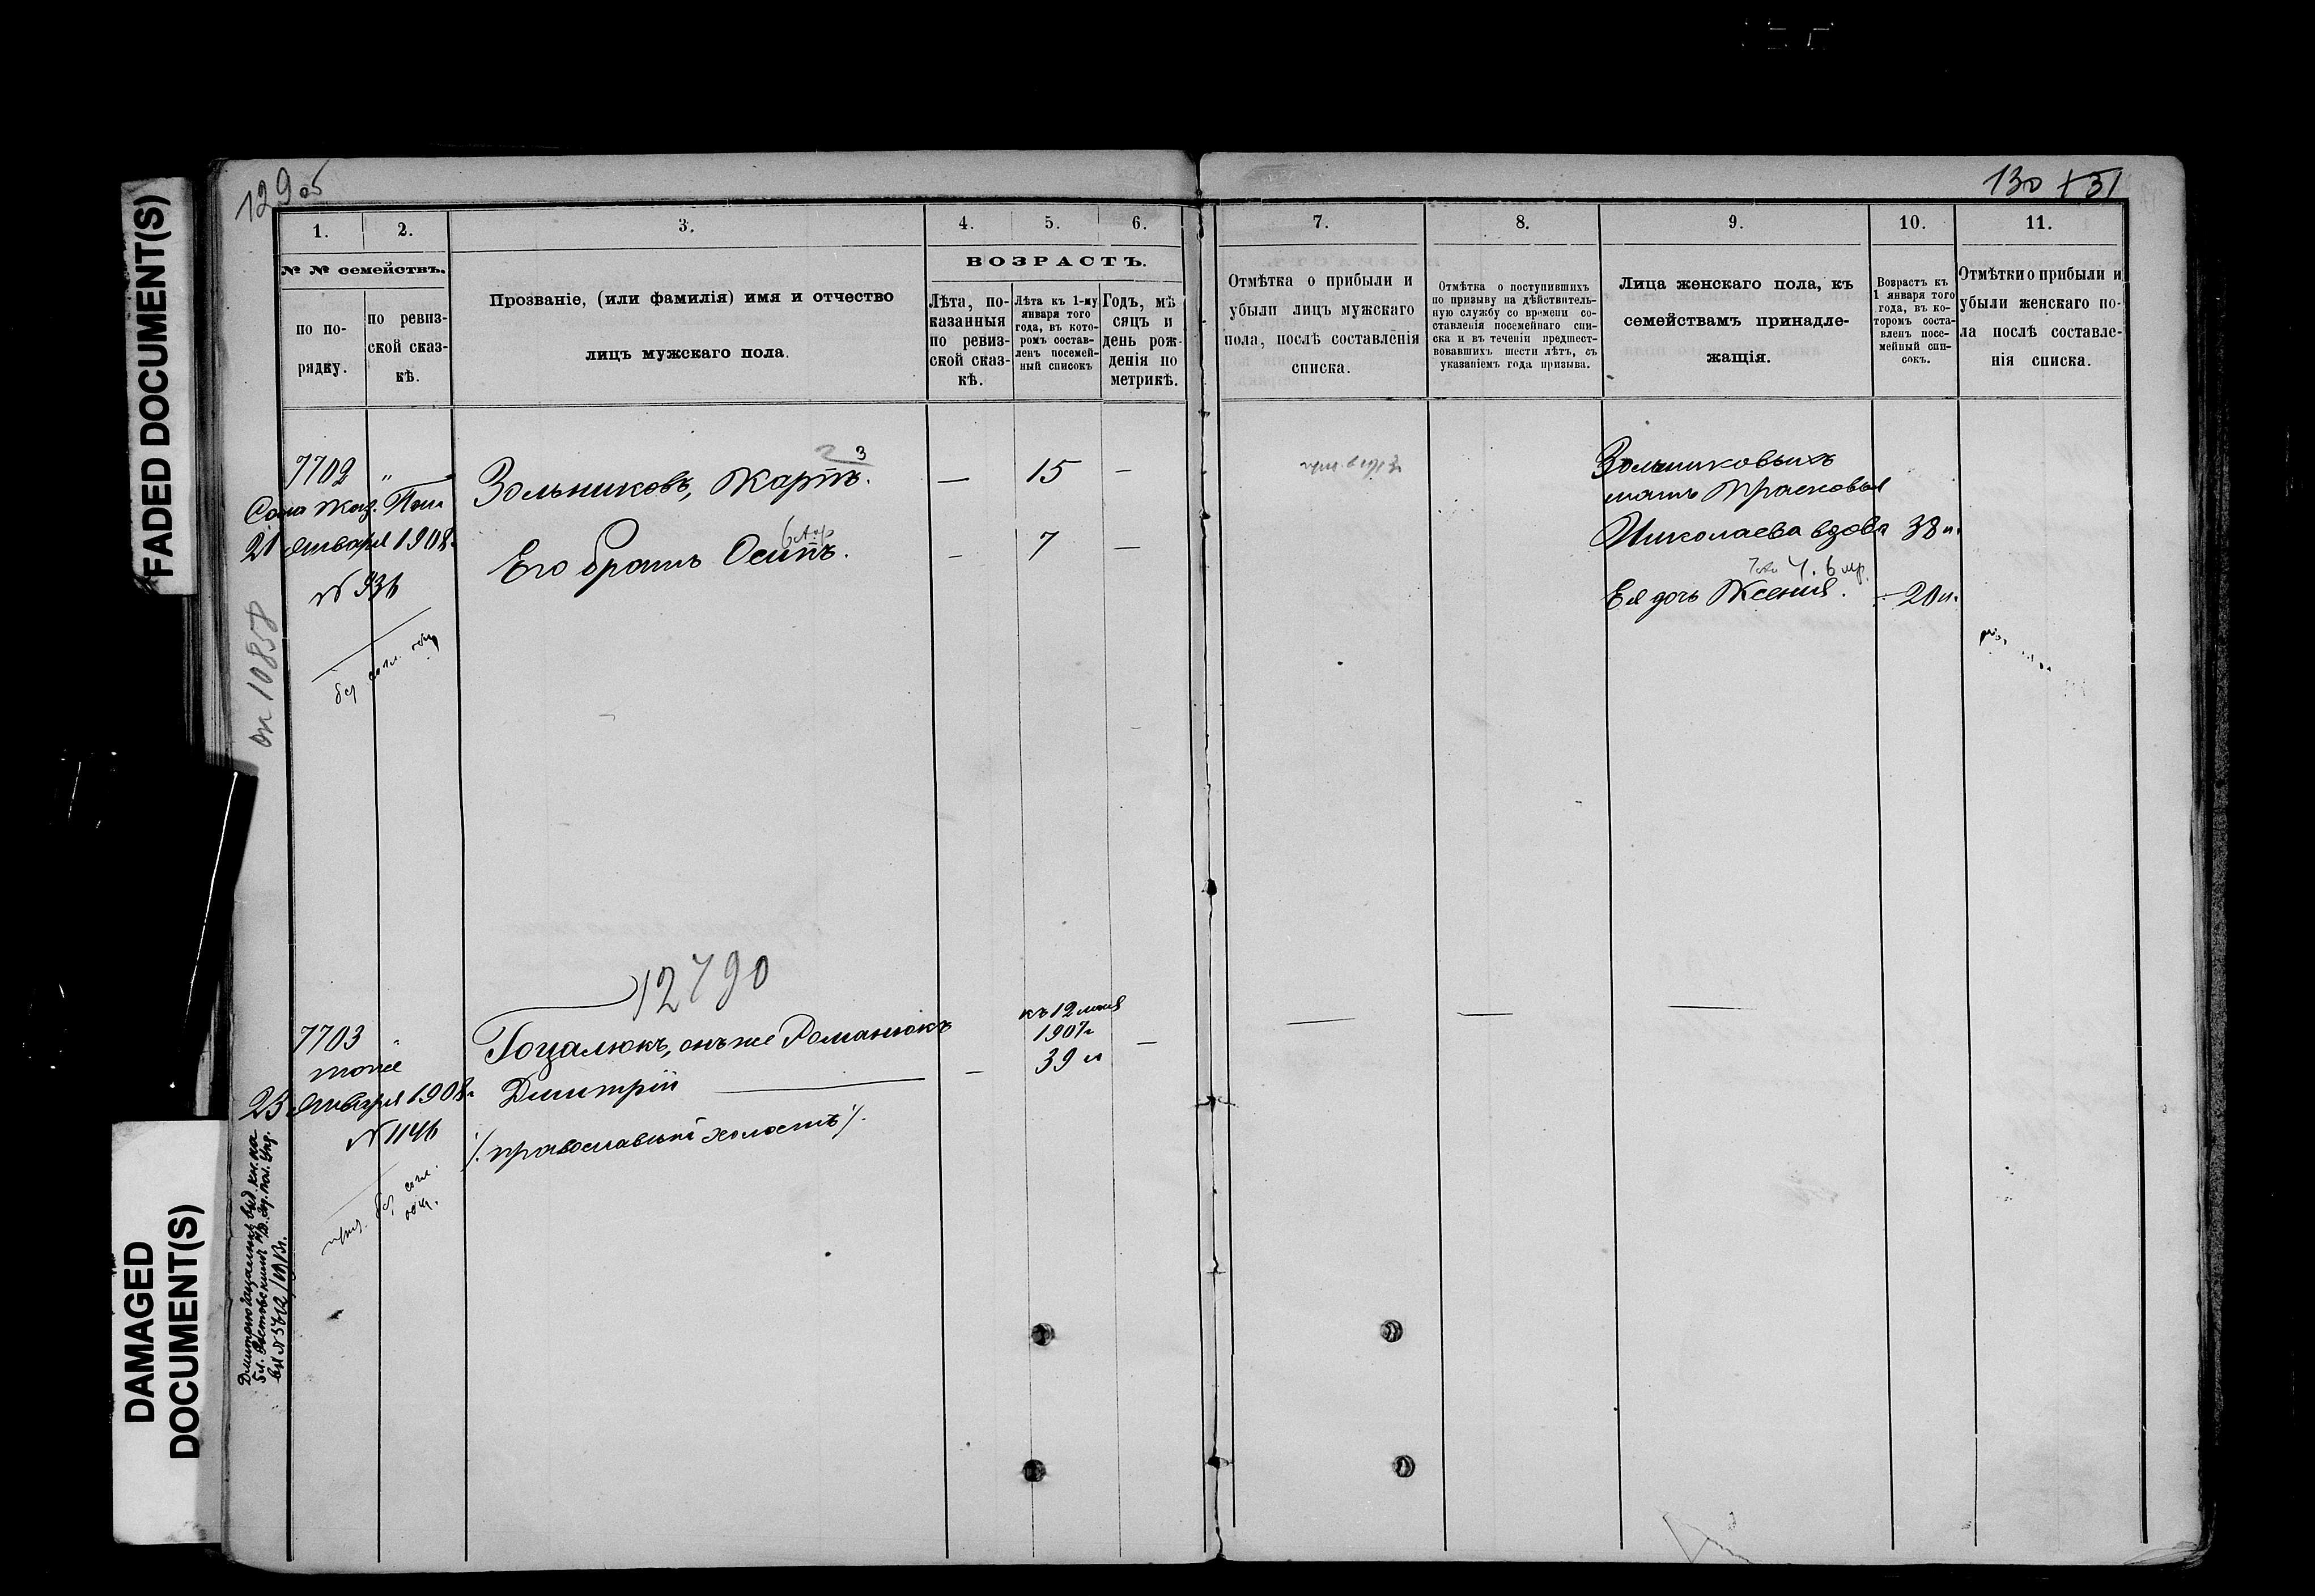 FADED DOCUMENT(S)
DAMAGED
DOCUMENT(S)
129 об
130 131
1.
2.
3.
4.
5.
6.
№ № семействъ.
по по-
рядку.
по ревиз-
ской сказ-
кѣ.
Прозваніе, (или фамилія) имя и отчество
лицъ мужскаго пола.
ВОЗРАСТЪ.
Лѣта, по-
казанныя
по ревиз-
ской сказ-
кѣ.
Лѣта къ 1-му
января того
года, въ кото-
ромъ состав-
ленъ посемей-
ный списокъ
Годъ, мѣ
сяцъ и
день рож-
денія по
метрикѣ.
7.
8.
9.
10.
11.
Отмѣтка о прибыли и
убыли лицъ мужскаго
пола, послѣ составленія
списка.
Отмѣтка о поступившихъ
по призыву на дѣйствитель-
ную службу со времени со-
ставленія посемейнаго спи-
ска и въ теченіи предшест-
вовавшихъ шести лѣтъ, съ
указаніемъ года призыва.
Лица женскаго пола, къ
семействамъ принадле-
жащія.
Возрастъ къ
1 января того
года, въ ко-
торомъ соста-
вленъ посе-
мейный спи-
сокъ.
Отмѣтки о прибыли и
убыли женскаго по-
ла послѣ составле-
нія списка.
7702 "
21 Января 1908 г.
№ 936
10858
3
Зольниковъ, Карпъ. — 15 —
Его братъ Осипъ. — 7 —
Зольниковыхъ
мать Прасковья
Николаева вдова 38 л.
Ея дочь Ксенія. — 20 л.
12790
7703 "
тоже
23 Января 1908 г.
№ 1146
Гоцалюкъ, онъ же Романюкъ
Дмитрій —
/. православный холостъ /.
къ 12 мая
1907 г
39 л